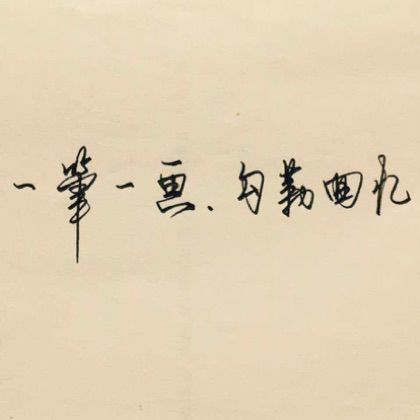 一筆一画、勾勒回忆